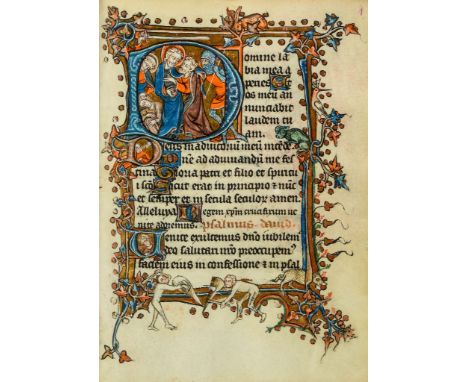 Domine la
bia mea a
peries Et
os meū an
nunciabit
laudem tu
am.
Deus in adiutoriū meū intēde
Dñe ad adiuvandū me fes
tina Gloria patri et filio et spiritui
scō Sicut erat in principio & nūc
et semper et in secula seculor amen
Alleluya Regem xp̄m crucifixum ve
nite adoremus. psalmus david.
Uenite exultemus dño iubilem
deo salutari nrō preoccupem
faciem eius in confessione & in psal